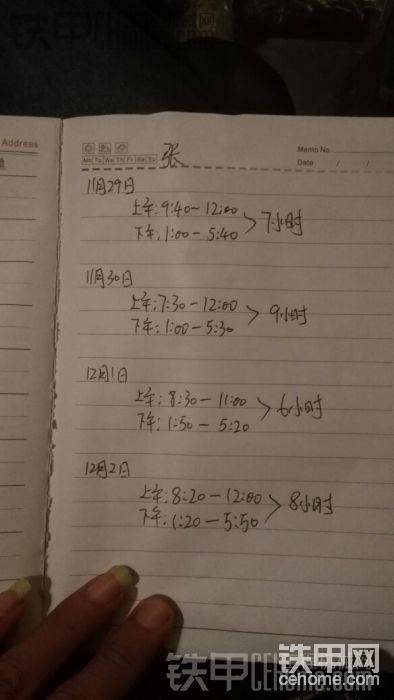 铁甲
Address
Memo No.
Mo Tu We Th Fr Sa Su
张
Date / /
11月29日
上午:9:40-12:00
下午:1:00-5:40
7小时
11月30日
上午:7:30-12:00
下午:1:00-5:30
9小时
12月1日
上午:8:30-11:00
下午:1:50-5:20
6小时
12月2日
上午:8:20-12:00
下午:1:20-5:50
8小时
铁甲网
cehome.com